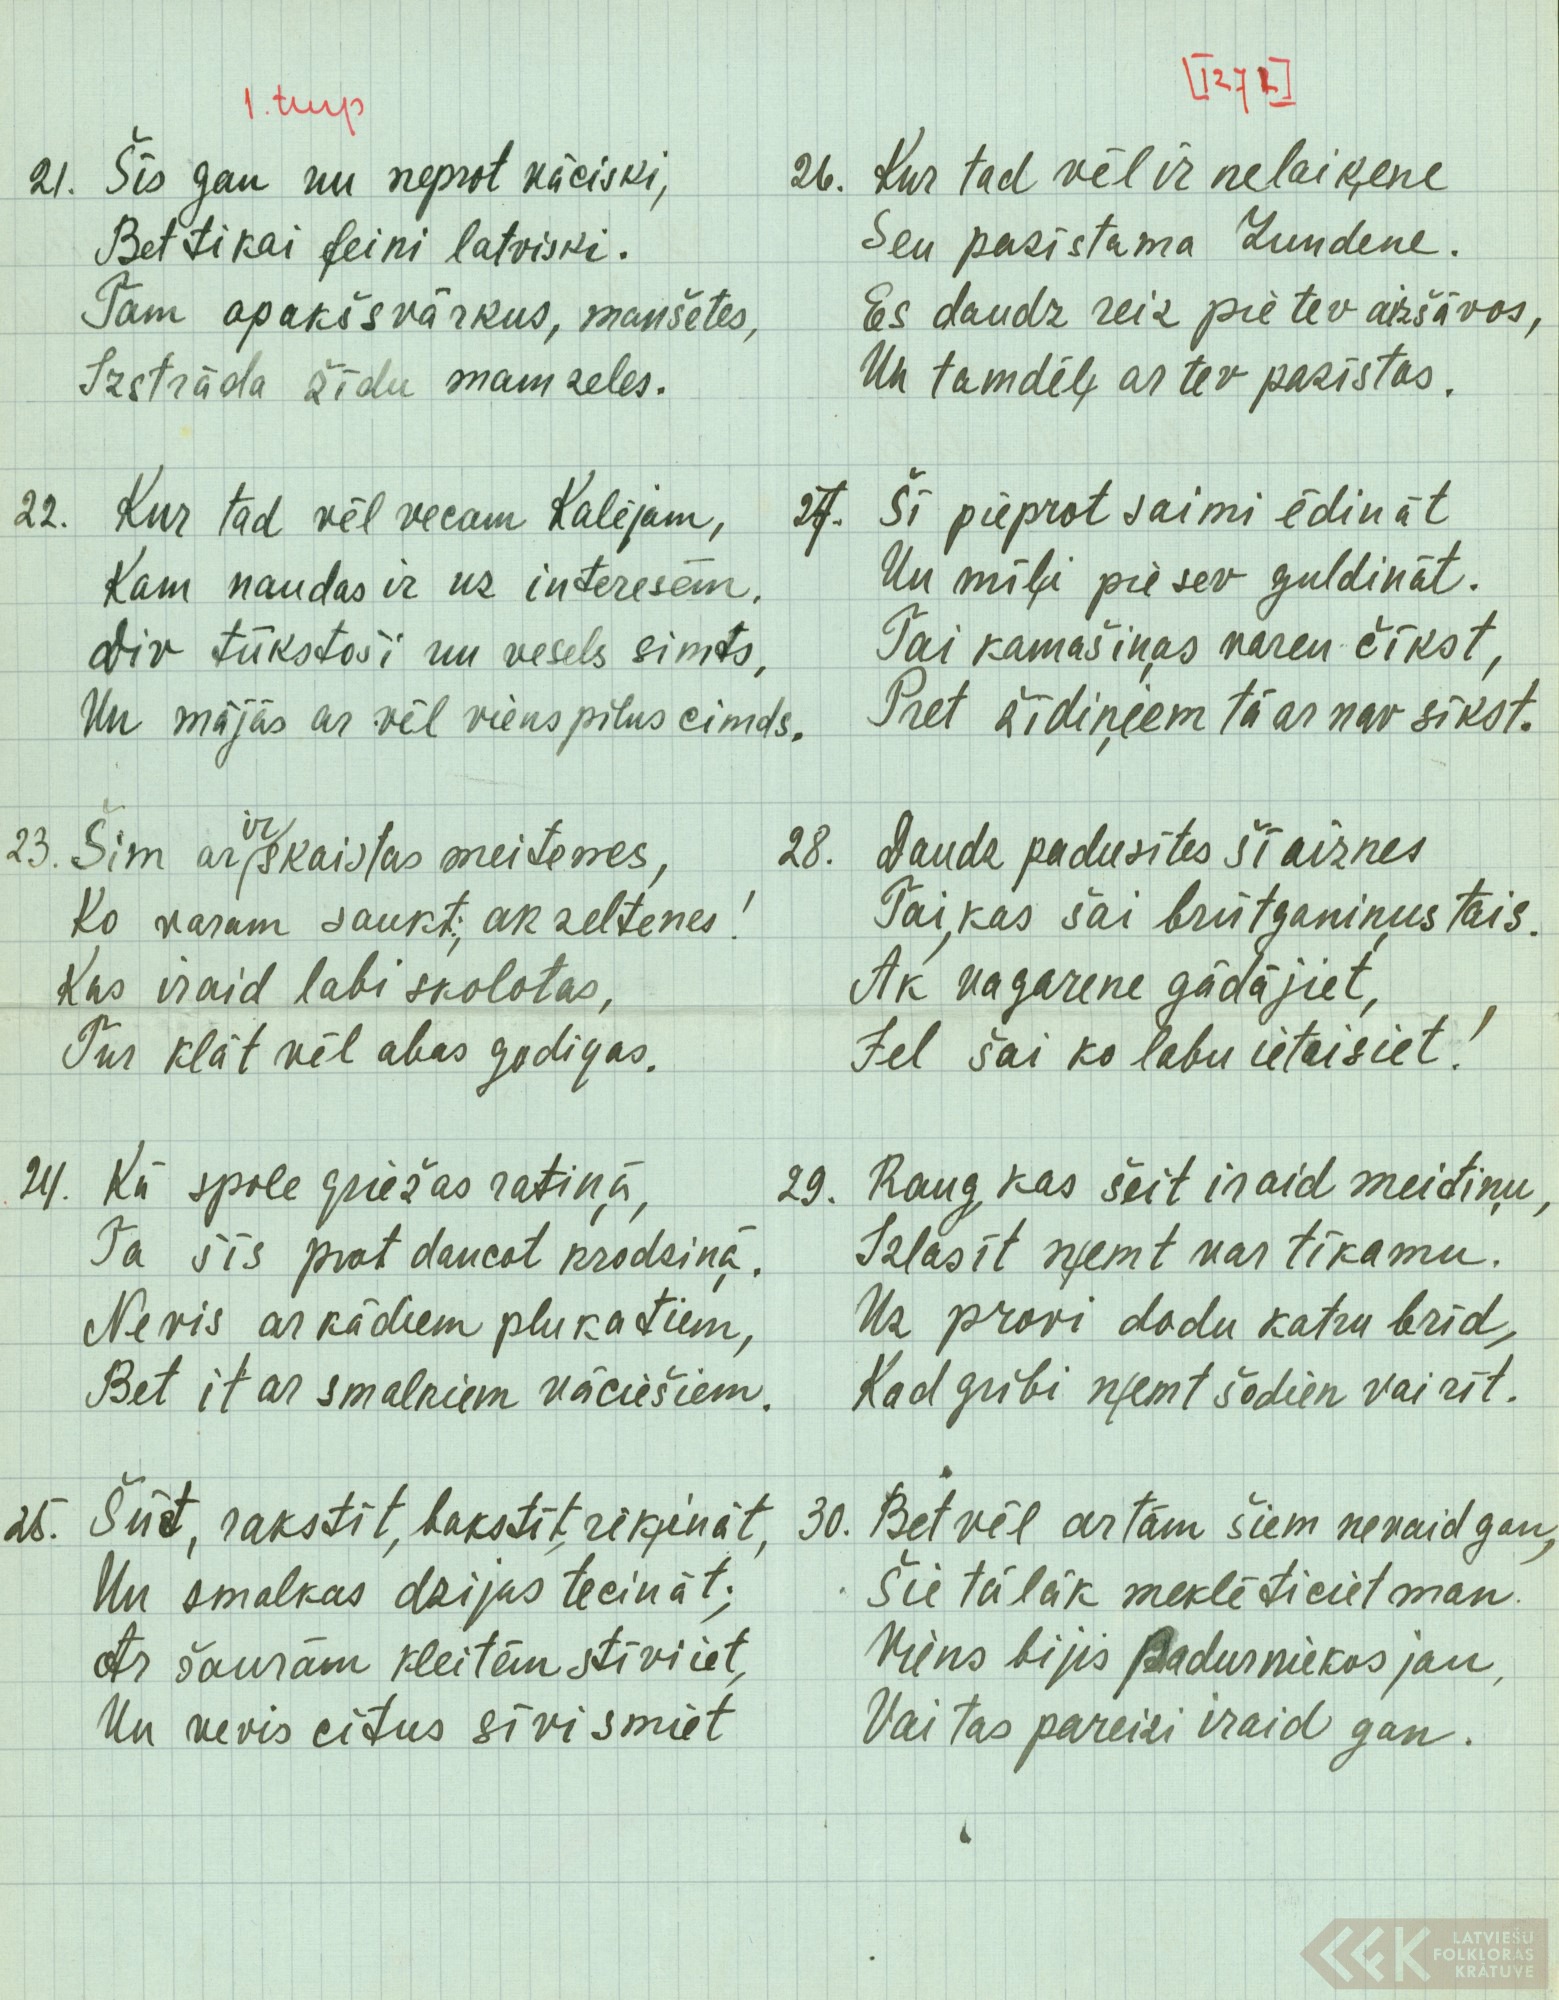 1. turp
[1272]
21. Šis gan nu neprot vāciski,
Bet tikai feini latviski.
Tam apakšsvārkus, manšetes,
Izstrāda žīdu mamzeles.
22. Kur tad vēl vecam Kalējam,
Kam naudas ir uz interesēm.
Div tūkstoši un vesels simts,
Un mājās ar vēl viens pilns cimds.
23. Šim ar ir skaistas meitenes,
Ko varam saukt; ak zeltenes!
Kas iraid labi skolotas,
Tur klāt vēl abas godigas.
24. Kā spole griežas ratiņā,
Ta šīs prot dancot krodziņā.
Nevis ar kādiem plukatiem,
Bet it ar smalkiem vāciešiem.
25. Šūt, rakstīt, bakstīt, rēķināt,
Un smalkas dzijas tecināt;
Ar šaurām kleitēm stīviet,
Un nevis citus sīvi smiet
26. Kur tad vēl ir nelaiķene
Sen pazistama Zundene.
Es daudz reiz pie tev aizšāvos,
Un tamdēļ ar tev pazīstos.
27. Šī pieprot saimi ēdināt
Un mīļi pie sev guldināt.
Tai kamašiņas varen čīkst,
Pret žīdiņiem tā ar nav sīkst.
28. Daudz padusītes šī aiznes
Tai, kas šai brūtganiņus tais.
Ak vagarene gādājiet,
Jel šai ko labu ietaisiet!
29. Raug, kas šeit iraid meitiņu,
Izlasīt ņemt var tīkamu.
Uz provi dodu katru brīd,
Kad gribi ņemt šodien vai rīt.
30. Bet vēl ar tām šiem nevaid gan,
Šie tālāk meklēt iciet man.
Viens bijis Padurniekos jau,
Vai tas pareizi iraid gan.
LATVIEŠU
FOLKLORAS
KRĀTUVE